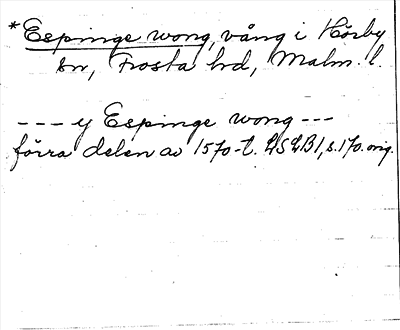 *Espinge wong, vång i Hörby
sn, Frosta hd, Malm. l.
--- y Espinge wong ---
förra delen av 1570-t. LSLB1, s. 170. orig.